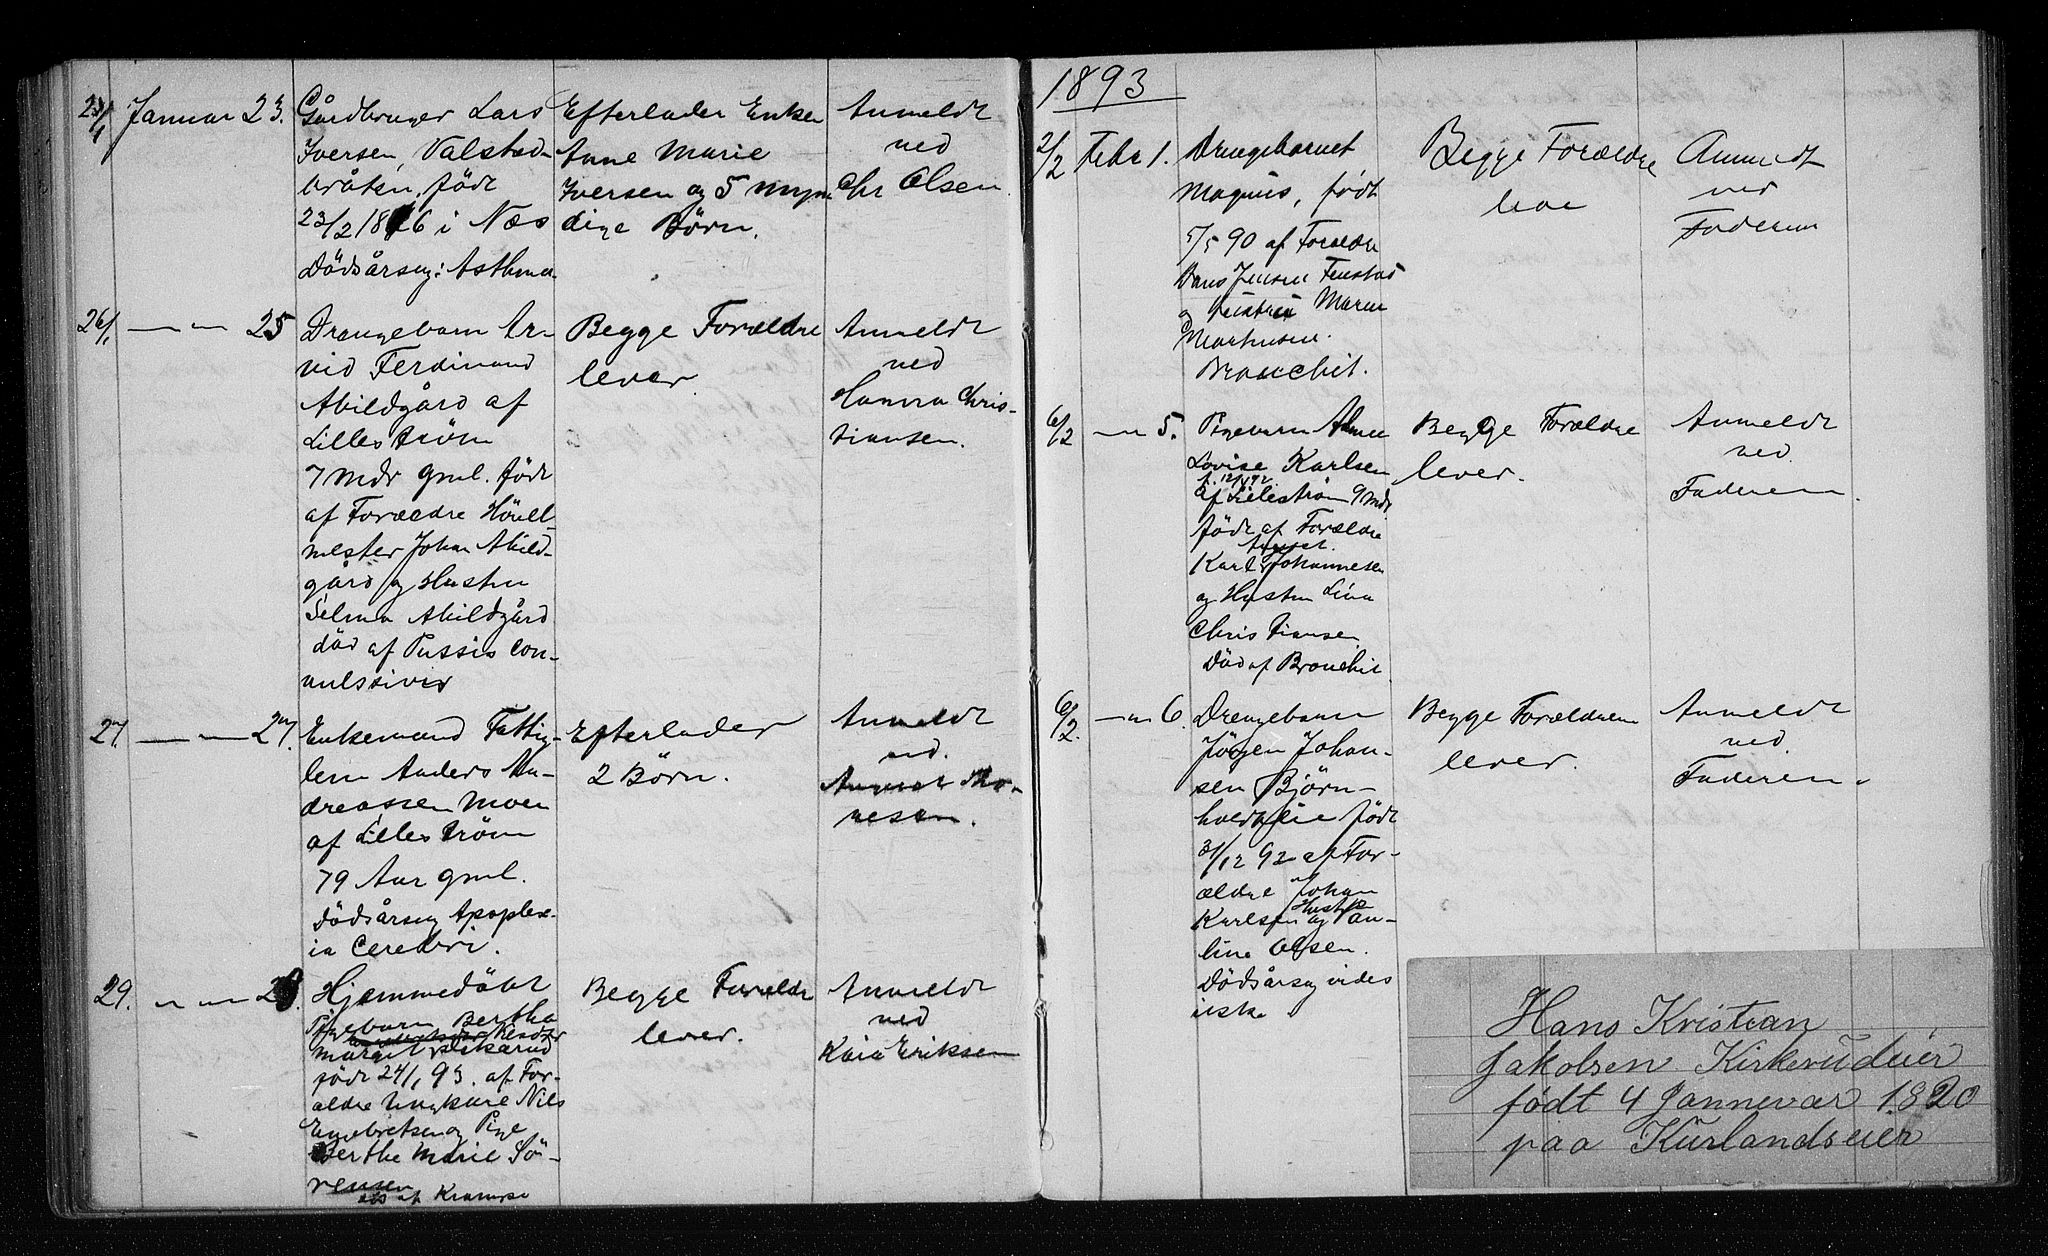 23/1 Januar 23. Gårdbruger Lars
Iversen, Valstad-
bråten, født
23/2 1816 i Næs
Dödsårsag: Asthma
Efterlader Enken
Anne Marie
Iversen og 5 myn
dige Børn.
Anmeldt
ved
Chr Olsen.
26/1 — 25 Drengebarn Ar-
vid Ferdinand
Abildgård af
Lillestrøm
7 Mdr gml. født
af Forældre
mester Johan Abild-
gård og Hustru
Selma Abildgård
död af Tussis con-
vulssivis
Begge Forældre
lever
Anmeldt
ved
Hanna Chris-
tiansen.
27. — 27. Enkemand Fattig-
lem Anders An-
dreassen Moen
af Lillestrøm
79 Aar gml.
Dödsårsag Apoplex-
ia Cerebri.
Efterlader
2 Börn.
Anmeldt
ved.
August Tho-
resen.
29. — 28. Hjemmedöbt
Pigebarn Bertha
Margit
født 24/1 93. af For-
ældre Ungkarl Nils
Engebretsen og Pige
Berthe Marie Sö-
rensen
död af Krampe
Begge Forældr
lever.
Anmeldt
ved
Kaia Eriksen
1893
2/2 Febr 1. Drengebarnet
Magnus, født
5/5 90 af Forældre
Hans Jensen
og Hustru Maren
Marthusen.
Bronchit.
Begge Forældre
leve
Anmeldt
ved
Faderen
6/2 — 5. Pigebarn
Lovise Karlsen
af Lillestrøm 9 Mdr
født af Forældre
August.
Karl Johannesen
og Hustru Lina
Christiansen
Död af Bronchit.
Begge Forældre
lever.
Anmeldt
ved.
Faderen.
6/2. — 6. Drengebarn
Jörgen Johan-
sen Björn-
holdteie født
31/12 92 af For-
ældre Johan
Hustru
Karlsen og Pau-
line Olsen.
Dödsårsag vides
ikke
Begge Forældrene
lever.
Anmeldt
ved.
Faderen.
Hans Kristian
Jakobsen Kirkerudeier
født 4 Jannevar 1820
paa Kurlandseier